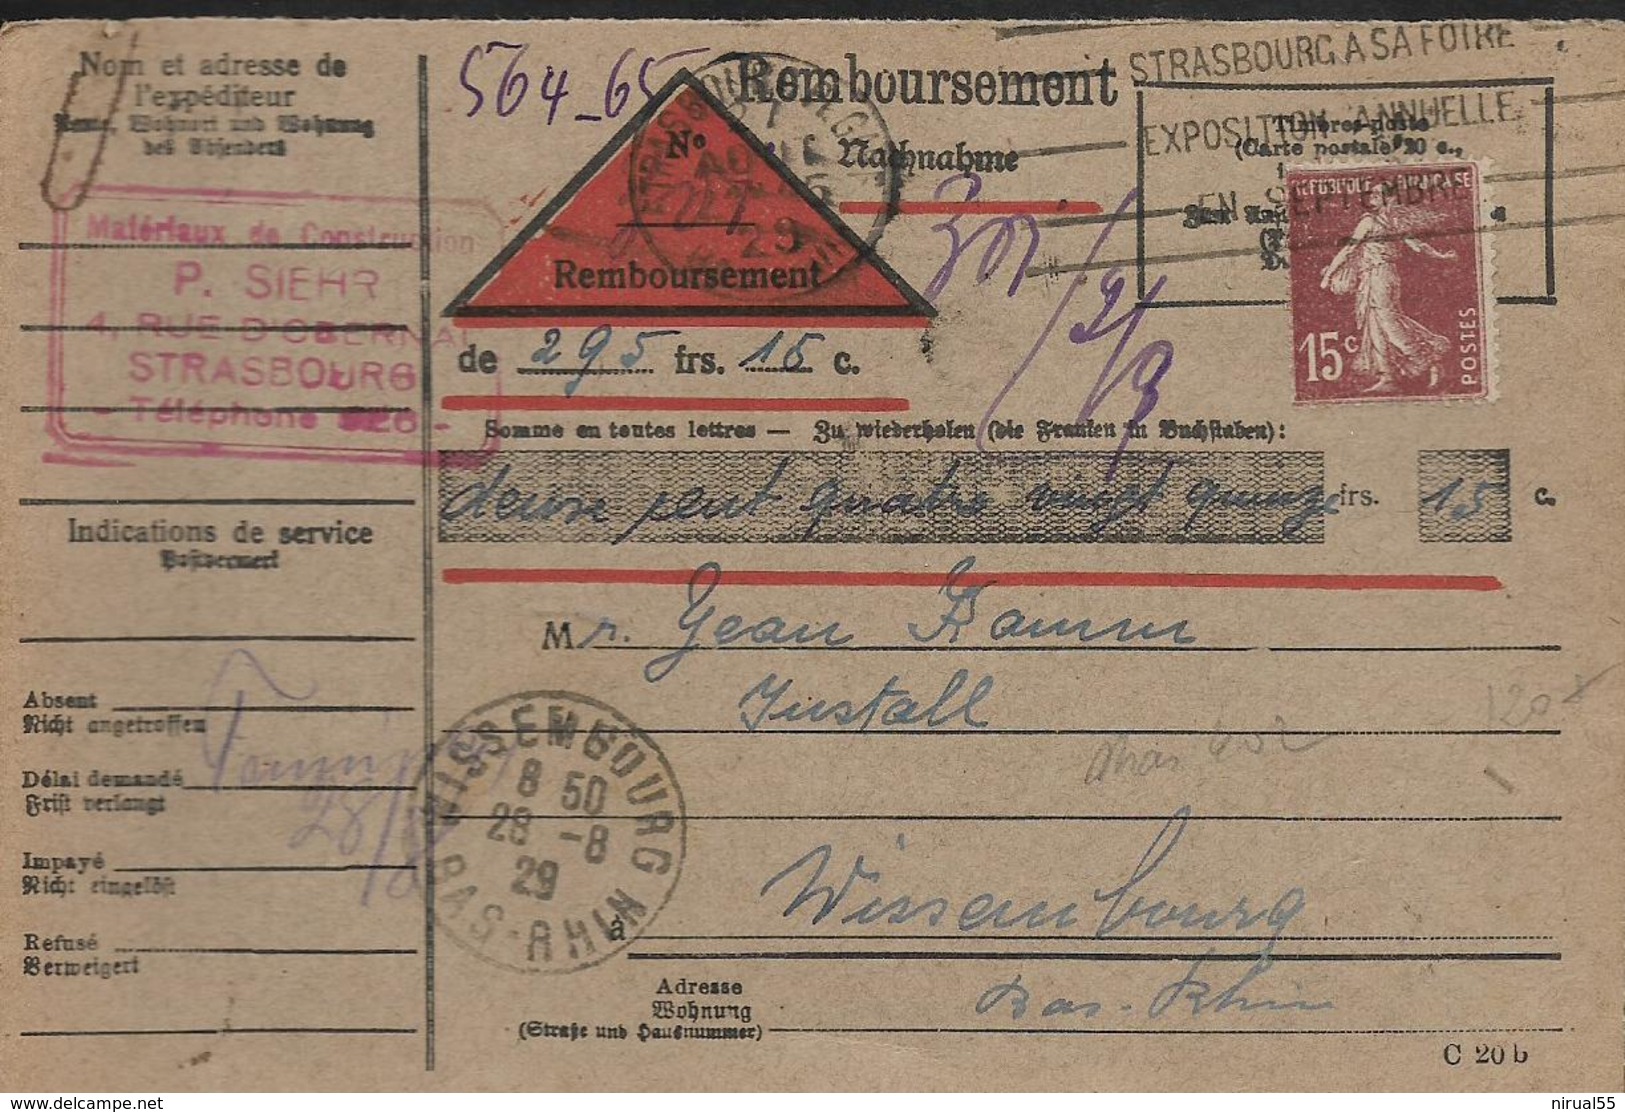 Nom et adresse de
l'expéditeur
Name, Wohnort und Wohnung
des Absenders
Matériaux de Construction
P. SIEHR
4, RUE D'OBERNAI
STRASBOURG
- Téléphone
564-65
Remboursement
Nachnahme
STRASBOURG
29
No
Remboursement
STRASBOURG A SA FOIRE
EXPOSITION ANNUELLE
EN SEPTEMBRE
Timbres-poste
(Carte postale 20 c.,
REPUBLIQUE FRANCAISE
15c
POSTES
de 295 frs. 15 c.
Somme en toutes lettres — Zu wiederholen (die Franken in Buchstaben):
deux cent quatre vingt quinze frs. 15 c.
Indications de service
Postvermerk
Mr. Jean Kamm
Install
Absent
Nicht angetroffen
Délai demandé
Frist verlangt
Impayé
Nicht eingelöst
Refusé
Verweigert
WISSEMBOURG
8 50
28 -8
29
BAS-RHIN
à Wissembourg
Bas-Rhin
Adresse
Wohnung
(Straße und Hausnummer)
C 20 b
delcampe.net
nirual55